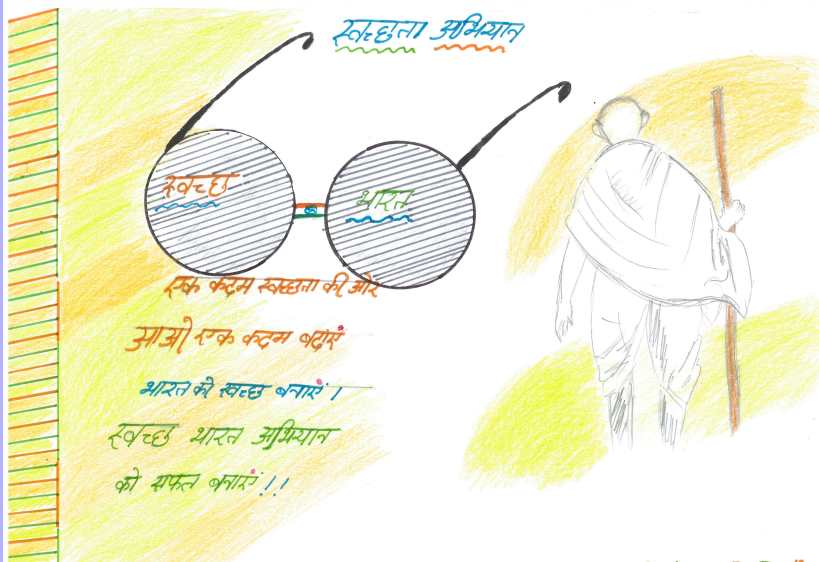 स्वच्छता अभियान
स्वच्छ भारत
एक कदम स्वच्छता की ओर
आओ एक कदम बढ़ाएं
भारत को स्वच्छ बनाएं।
स्वच्छ भारत अभियान
को सफल बनाएं!!